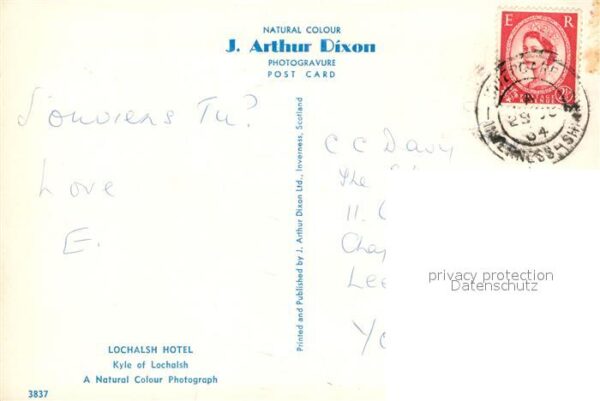 NATURAL COLOUR
J. Arthur Dixon
PHOTOGRAVURE
POST CARD
Souviens Tu?
Love
E.
LOCHALSH HOTEL
Kyle of Lochalsh
A Natural Colour Photograph
3837
Printed and Published by J. Arthur Dixon Ltd., Inverness, Scotland
E R
INVERNESS-SHIRE
C C Davy
The
11. C
Chap
Lee
Yo
privacy protection
Datenschutz